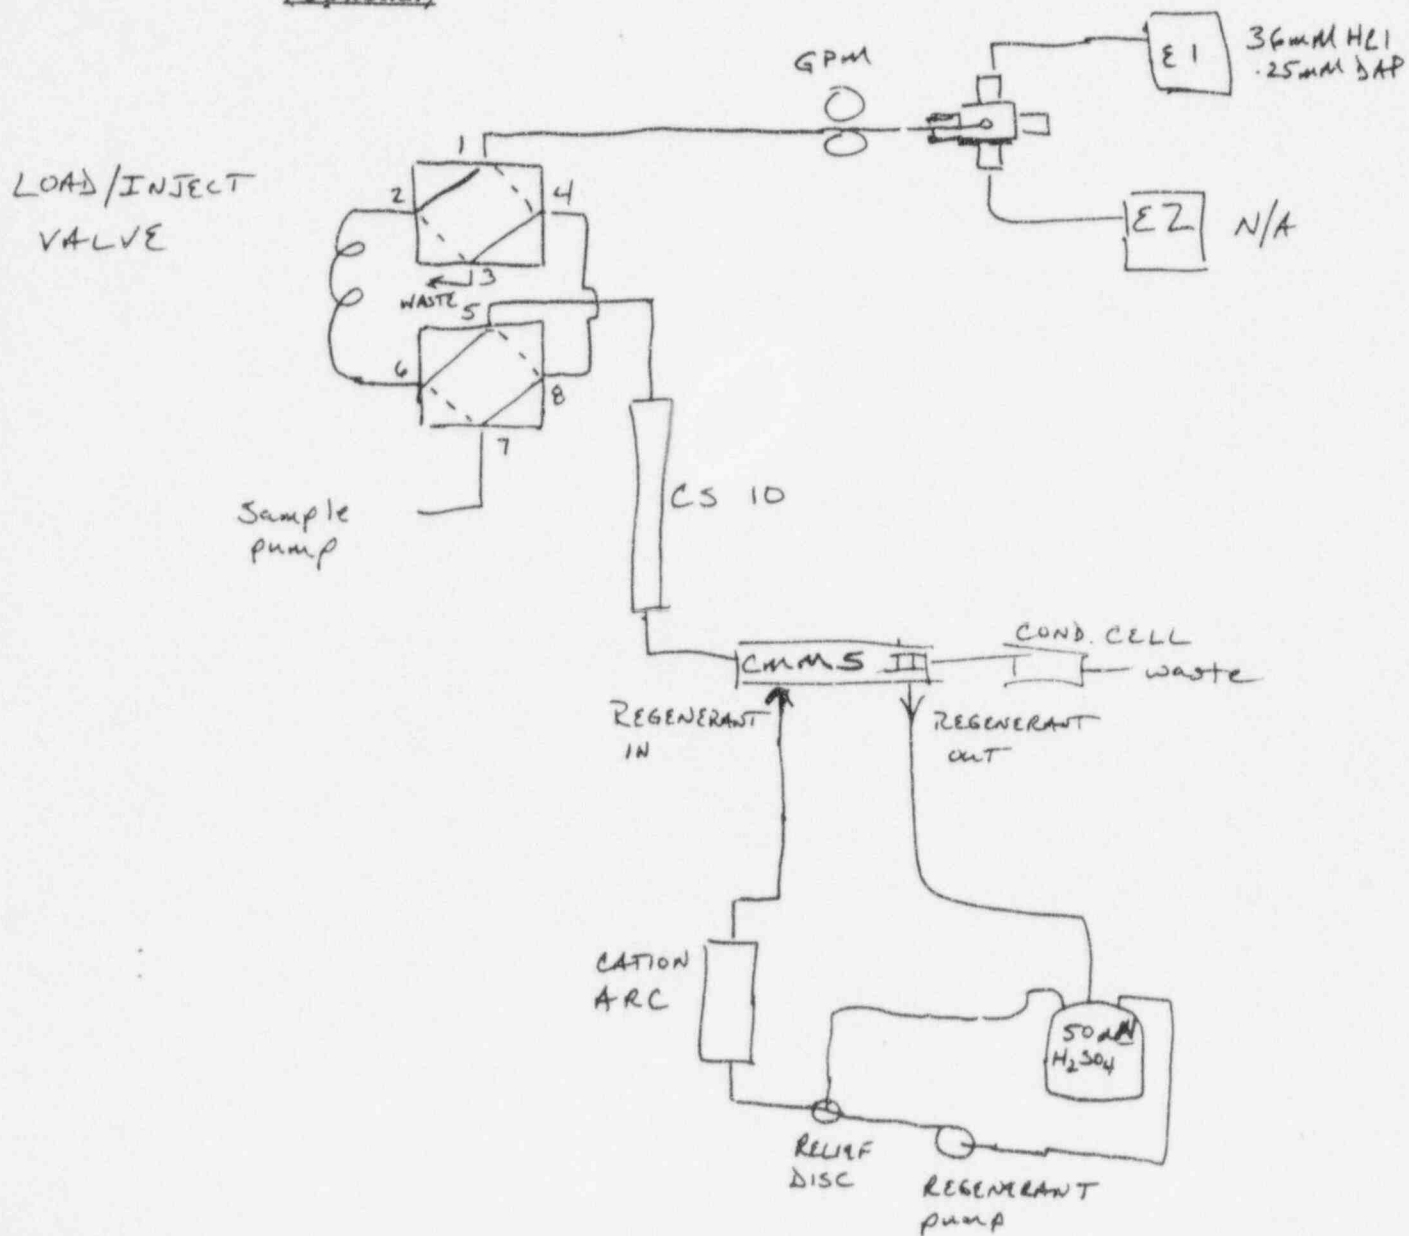 GPM
E1
36mM HCl
.25mM DAP
LOAD/INJECT
VALVE
1
2
4
3
WASTE
5
6
8
7
E2
N/A
Sample
pump
CS 10
CMMS II
COND. CELL
waste
REGENERANT
IN
REGENERANT
OUT
CATION
ARC
H2SO4
RELIEF
DISC
REGENERANT
pump